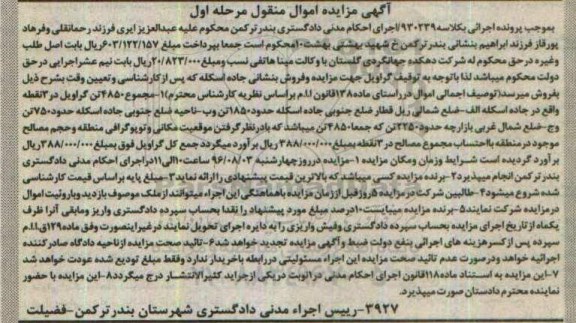 آگهی مزایده اموال منقول مرحله اول
بموجب پرونده اجرائی بکلاسه ۹۳۰۲۳۹/اجرای احکام مدنی دادگستری بندرترکمن محکوم علیه عبدالعزیز ایری فرزند رحمانقلی وفرهاد
پورقاز فرزند ابراهیم بنشانی بندرترکمن خ شهید بهشتی بهشت۱۰محکوم است جمعا بپرداخت مبلغ ۶۰۳/۱۲۲/۱۵۷ریال بابت اصل طلب
وغیره درحق محکوم له شرکت دهکده جهانگردی گلستان با وکالت مینا هاتفی نسب ومبلغ۲۰/۸۲۳/۰۰۰ریال بابت نیم عشراجرایی درحق
دولت محکوم میباشد لذا باتوجه به توقیف گراویل جهت مزایده وفروش بنشانی جاده اسکله که پس ازکارشناسی وتعیین وقت بشرح ذیل
بفروش میرسد(توصیف اجمالی اموال درراستای ماده۱۳۸قانون ا.م براساس نظریه کارشناس محترم)۱-مجموع۴۸۵۰تن گراویل در۳نقطه
واقع در جاده اسکله الف-ضلع شمالی ریل قطار ضلع جنوبی جاده اسکله حدود۱۸۵۰تن وب-ناحیه ضلع جنوبی جاده اسکله حدود۷۵۰تن
وج-ضلع شمال غربی بازارچه حدود۲۲۵۰تن که جمعا۴۸۵۰تن میباشد که بادرنظرگرفتن موقعیت مکانی وتوپوگرافی منطقه وحجم مصالح
موجود درمنطقه بااحتساب مجموع مصالح در۳نقطه بمبلغ ۳۸۸/۰۰۰/۰۰۰ ریال برآورد میگردد جمع کل گراویل فوق بمبلغ ۳۸۸/۰۰۰/۰۰۰ریال
برآورد گردیده است شرایط وزمان ومکان مزایده ۱-مزایده درروزچهارشنبه ۹۶/۰۸/۰۳ ساعت۱۰الی۱۱دراجرای احکام مدنی دادگستری
بندرترکمن انجام میپذیرد۲-برنده مزایده کسی میباشد که بالاترین قیمت پیشنهادی را ارائه نماید۳-مبلغ پایه براساس قیمت کارشناسی
شده شروع میشود۴-طالبین شرکت درمزایده ۵روزقبل اززمان مزایده باهماهنگی این اجراء میتوانند ازملک موصوف بازدید وباروئیت اموال
درمزایده شرکت نمایند۵-برنده مزایده میبایست۱۰درصد مبلغ مورد پیشنهاد را نقدا بحساب سپرده دادگستری واریز ومابقی آنرا ظرف
یکماه ازتاریخ اجرای مزایده بحساب سپرده دادگستری وفیش واریزی را به دایره اجرای تحویل نمایند درغیراینصورت وفق ماده۱۲۹ق.ا.م
سپرده پس ازکسرهزینه های اجرائی بنفع دولت ضبط وآگهی مزایده تجدید خواهد شد۶-تائید صحت مزایده ازناحیه دادگاه صادرکننده
اجرائیه خواهد ودرصورت عدم تائید صحت مزایده این اجراء مسئولیتی دررابطه باخریدار ندارد وفقط مبلغ تودیع شده عودت خواهد شد
۷-این مزایده به استناد ماده۱۱۸قانون اجرای احکام مدنی در۱نوبت دریکی ازجراید کثیرالانتشار درج میگردد۸-این مزایده با حضور
نماینده محترم دادستان صورت میپذیرد.
۳۹۲۷-رییس اجراء مدنی دادگستری شهرستان بندرترکمن-فضیلت